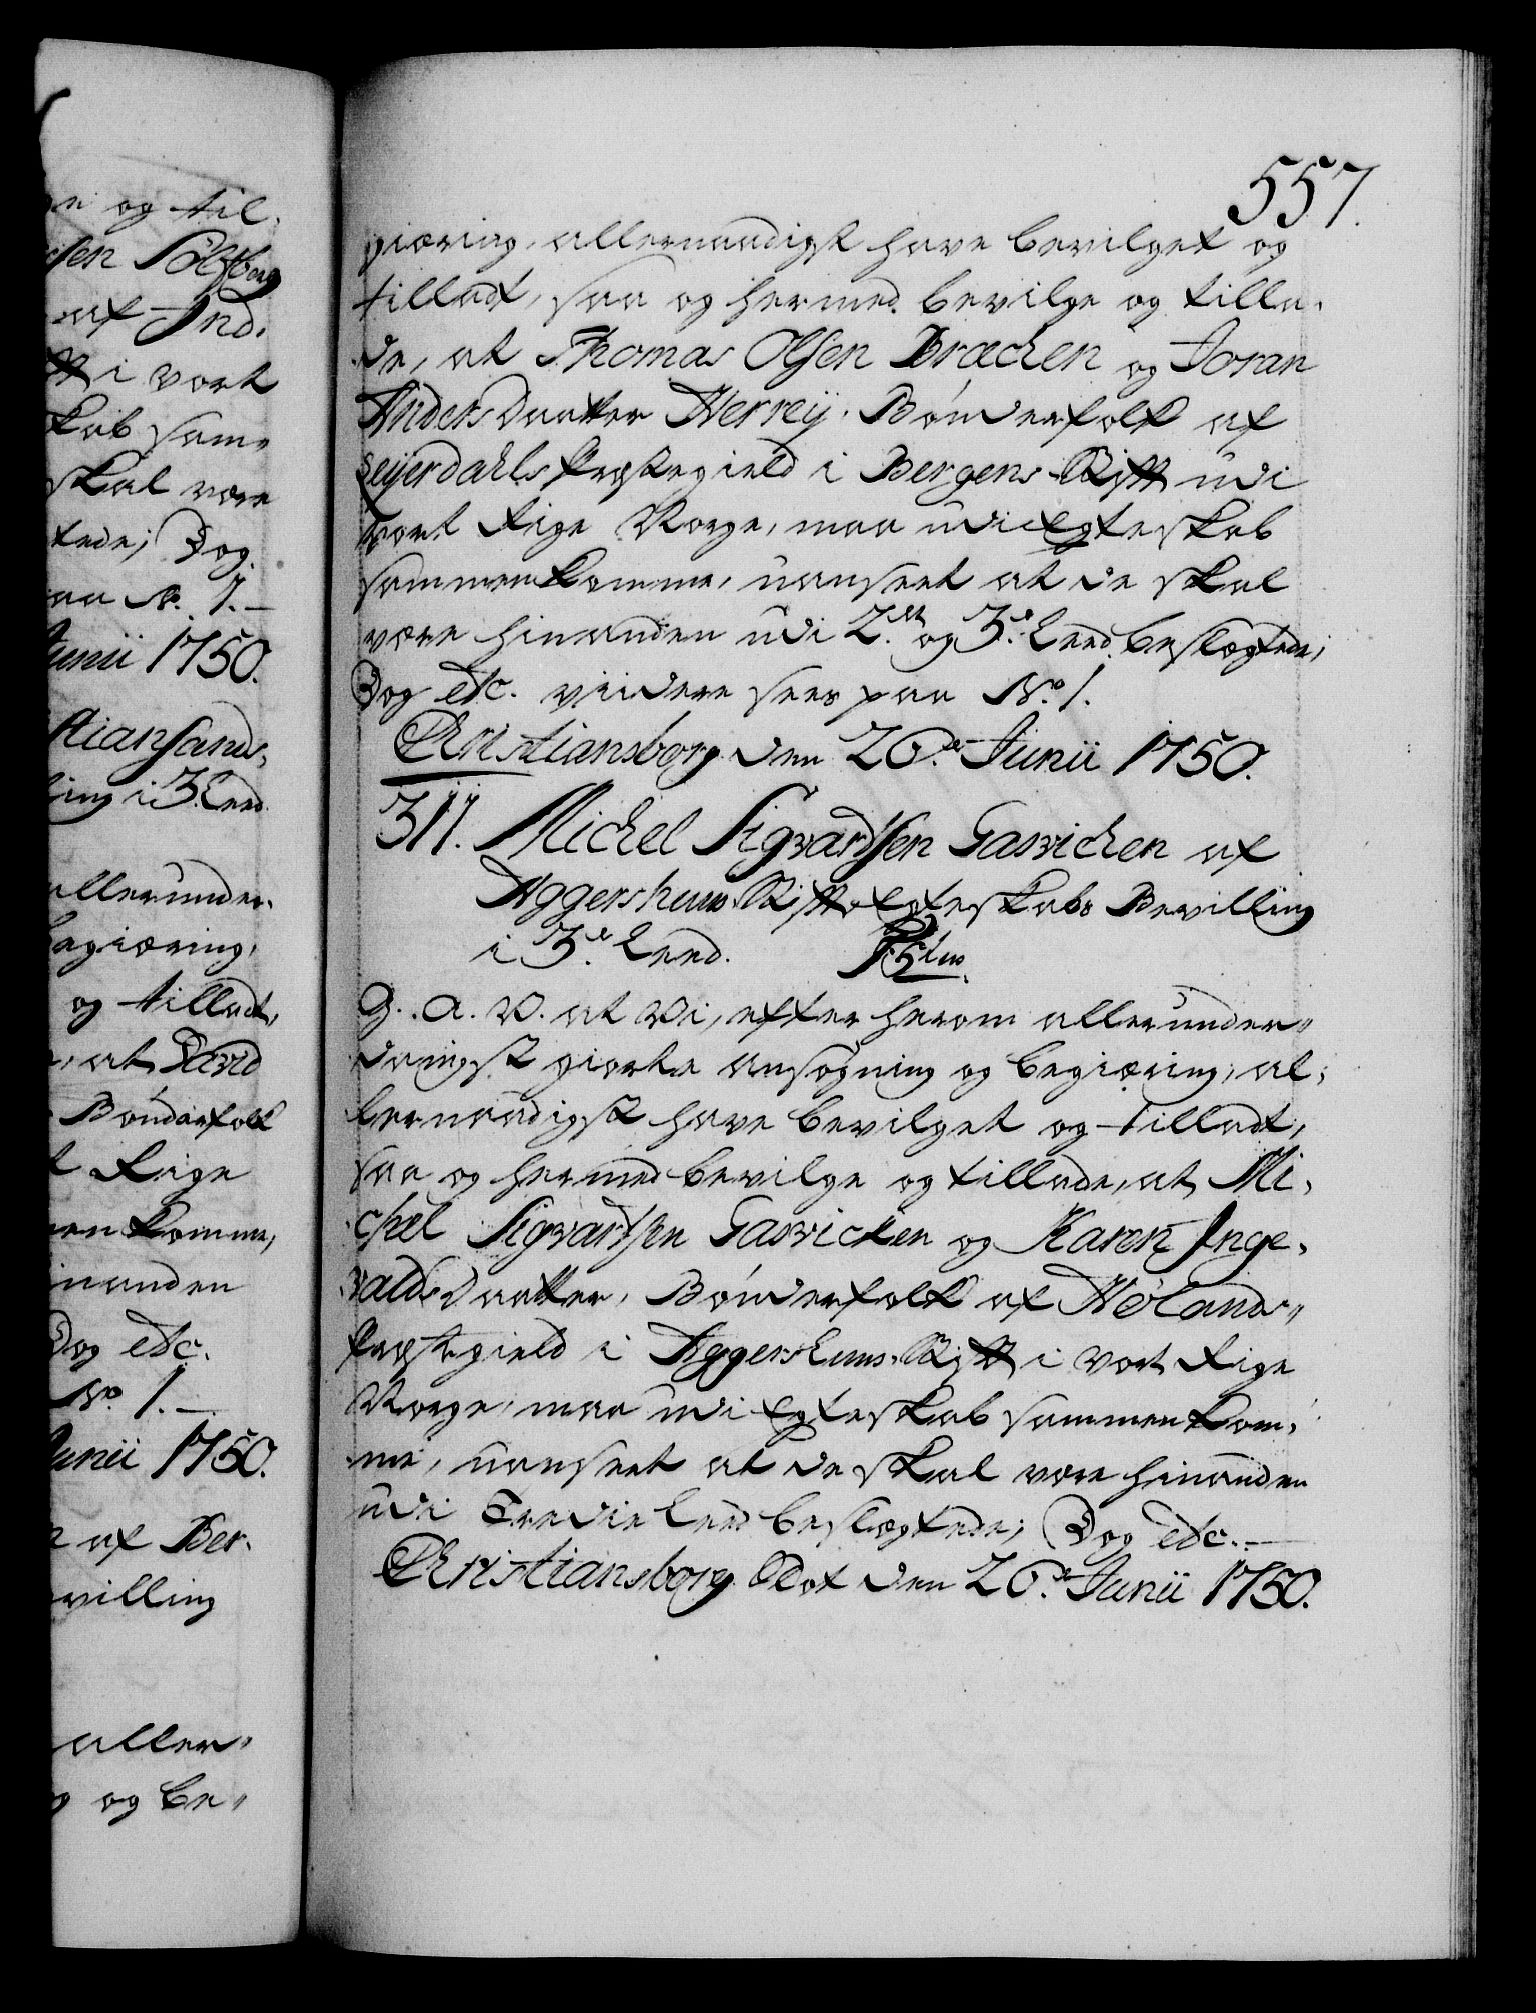 557.
giæring, allernaadigst have bevilget og
tilladt, saa og hermed bevilge og tilla-
de, at Thomas Olsen Bræchen og Joran
Anders Daatter Herreÿ, Bønderfolk af
Seÿerdahls Præstegield i Bergens Stift udi
vort Rige Norge, maa udi Egteskab
sammenkomme, uanseet at de skal
være hinanden udi 2.det og 3.de Leed beslægtede;
Dog etc. viidere sees paa No. 1.
Christiansborg den 26.de Junii 1750.
311. Michel Sigvardsen Gasvichen af
Aggershuus Stift Egteskabs Bevilling
i 3.de Leed.
G. A. V. at Vi, efter herom allerunder-
danigst giorte ansøgning og begiæring, al-
lernaadigst have bevilget og tilladt,
saa og hermed bevilge og tillade, at Mi-
chel Sigvardsen Gasvichen og Karen Inge-
valds Daatter, Bønderfolk af Hølands-
Præstegield i Aggershuus Stift i vort Rige
Norge, maa udi Egteskab sammenkom-
me, uanseet at de skal være hinanden
udi Tredie Leed beslægtede; Dog etc.
Christiansborg Slot den 26.de Junii 1750.
og til-
af Ind-
i vort
skal være
tede; Dog
No. 1.
Junii 1750.
i 3 Leed
allerunder-
begiæring,
og tilladt,
at David
Bønderfolk
Rige
komme,
hinanden
Dog etc.
No. 1.
Junii 1750.
af Ber-
villing
aller-
og be-